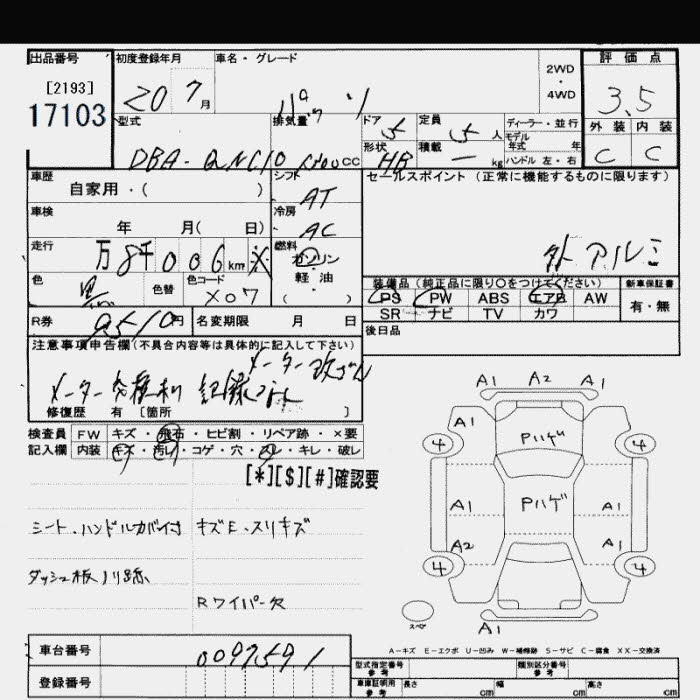 出品番号 初度登録年月 車名・グレード 評価点
[2193] 20 7月 2WD・4WD 3.5
17103 パッソ
型式 排気量 ドア 5 定員 5人 ディーラー・並行 外装 内装
モデル年式 年
DBA-QNC10 cc 形状 HB 積載 ー kg ハンドル 左・右 C C
車歴 自家用・( ) シフト AT セールスポイント (正常に機能するものに限ります)
車検 年 月( 日) 冷房 AC
外アルミ
走行 万8千006km ※ 燃料 ガソリン 軽・油 ( )
色 黒 色替 色コード X07
装備品 (純正品に限り○をつけてください) 新車保証書
PS PW ABS エアB AW 有・無
SR ナビ TV カワ
R券 9510円 名変期限 月 日 後日品
注意事項申告欄(不具合内容等は具体的に記入して下さい)
メーター改ざん
メーター交換 記録
修復歴 有 [箇所 ]
検査員 FW キズ・飛石・ヒビ割・リペア跡・×要
記入欄 内装 キズ・汚レ・コゲ・穴・スレ・キレ・破レ
[*][$][#]確認要
シート、ハンドルカバー付 キズE、スリキズ
ダッシュ板ノリ跡
Rワイパー欠
A1 A2 A1
A1 A1
4 Pハゲ 4
Pハゲ
A1 A1
A2 A1
4 4
スペア
A1
A-キズ E-エクボ U-凹み W-補修跡 S-サビ C-腐食 XX-交換済
車台番号 0097591
型式指定番号 参考 類別区分番号 参考
登録番号
車庫証明用 参考 長さ cm 幅 cm 高さ cm